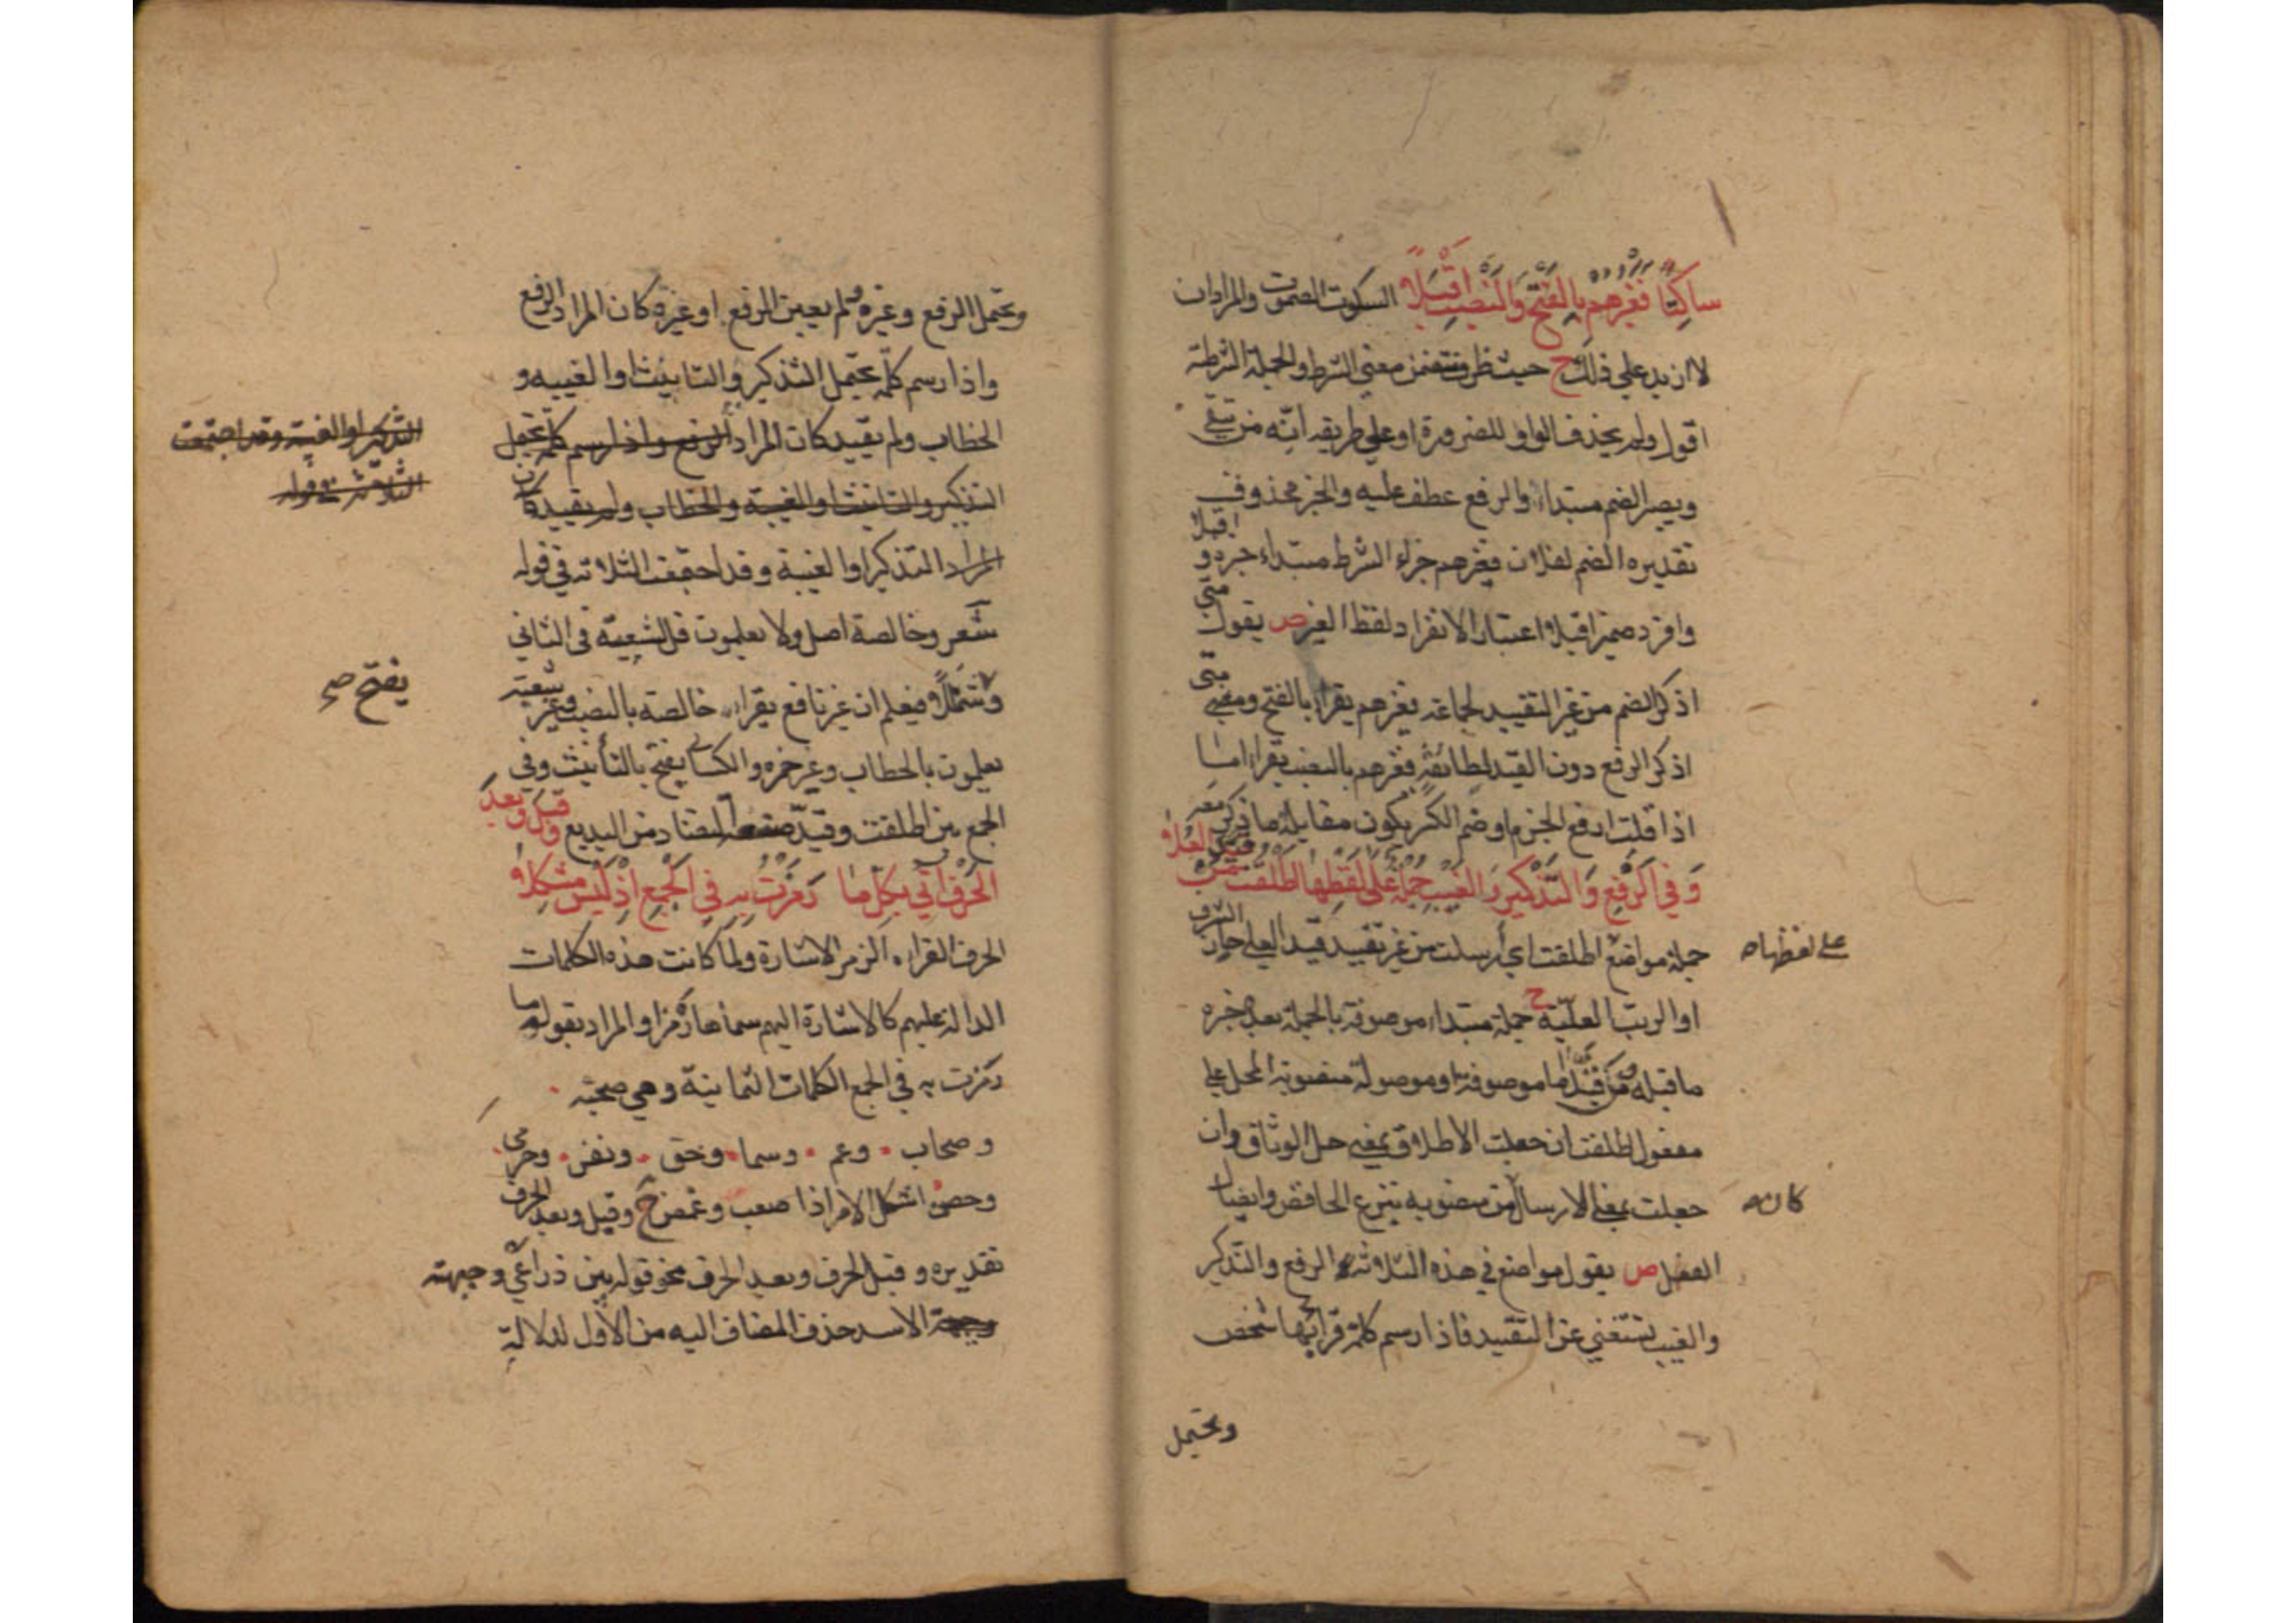 ساكتا فغيرهم بالفتح والنصب اقبلا السكوت الصموت والمراد ان
لا ازيد على ذلك ح حيث ظرف تتضمن معنى الشرط والجملة الشرطية
اقول ولم يحذف الواو للضرورة او على طريقه انه من يتقي
ويصير الضم مبتداء والرفع عطف عليه والخبر محذوف
تقديره الضم لفلان فغيرهم جزاء الشرط مبتداء خبره اقبلا و
وافرد ضمير اقبلا اعتبار الانفراد لفظ الغير ص يقول متى
اذكر الضم من غير التقييد لجماعة فغيرهم يقرا بالفتح ومتى
اذكر الرفع دون القيد لطائفة فغيرهم بالنصب يقراء اما
اذا قلت ارفع الجزم او ضم الكسر يكون مقابله ما ذكر معه
وفي الرفع والتذكير والغيب جملة على لفظها اطلقت من قيد العلا
جملة مواضع اطلقت اي ارسلت من غير تقييد قيد العلي حاز الشرف
على لفظها
او الرتب العليّة ح جملة مبتداء موصوفة بالجملة بعد خبره
ما قبله من قيد اما موصوفة او موصولة منصوبة المحل على
مفعول اطلقت ان جعلت الاطلاق بمعنى حل الوثاق وان
جعلت بمعنى الارسال من منصوبه بنزع الخافض وايصال
كان
الفعل ص يقول مواضع في هذه الثلاثة الرفع والتذكير
والغيب تستغني عن التقييد فاذا رسم كلمة قرائها شخص
ويحتمل
ويحتمل الرفع وغيره ولم يعين الرفع او غيره كان المراد الرفع
واذا رسم كلمة يحتمل التذكير والتانيث او الغيبه و
الخطاب ولم يقيد كان المراد الرفع واذا رسم كلمة تحتمل
التذكير او الغيبة وقد اجتمعت
الثلاثة في قوله
التذكير والتانيث او الغيبة والخطاب ولم يقيد كان
المراد التذكير او الغيبة وقد اجتمعت الثلاثة في قوله
شعر وخالصة اصل ولا يعلمون قل لشعبة في الثاني
ويفتح شمللا فيعلم ان غير نافع يقراء خالصة بالنصب وغير شعبة
يفتح صح
يعلمون بالخطاب وغير حمزه والكسائي يفتح بالتأنيث وفي
الجمع بين اطلقت وقيد صنعة التضاد من البديع وقبل وبعد
الحرف اتي بكل ما رمزت به في الجمع اذ ليس مشكلا
الحرف القراءة الرمز الاشارة ولما كانت هذه الكلمات
الدالة عليهم كالاشارة اليهم سماها رمزا والمراد بقوله ما
رمزت به في الجمع الكلمات الثمانية وهي صحبة
وصحاب وعم وسما وحق ونفر وحرمى
وحصن اشكل الامر اذا صعب وغمض ح وقبل وبعد الحرف
تقديره وقبل الحرف وبعد الحرف نحو قوله بين ذراعي وجبهة
الاسد حذف المضاف اليه من الاول لدلالة